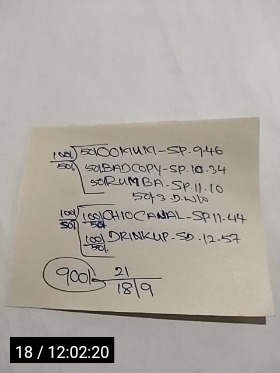 100/50/ 50/ OOKIUKI-SP.9.46
50/ BADCOPY-SP.10.34
50/ RUMBA-SP.11.10
50/3.D.W/O
100/50/ 100/50/ OHIOCANAL-SP11.44
100/50/ DRINKUP-SD.12.57
900/- 21
18/9
18 / 12:02:20